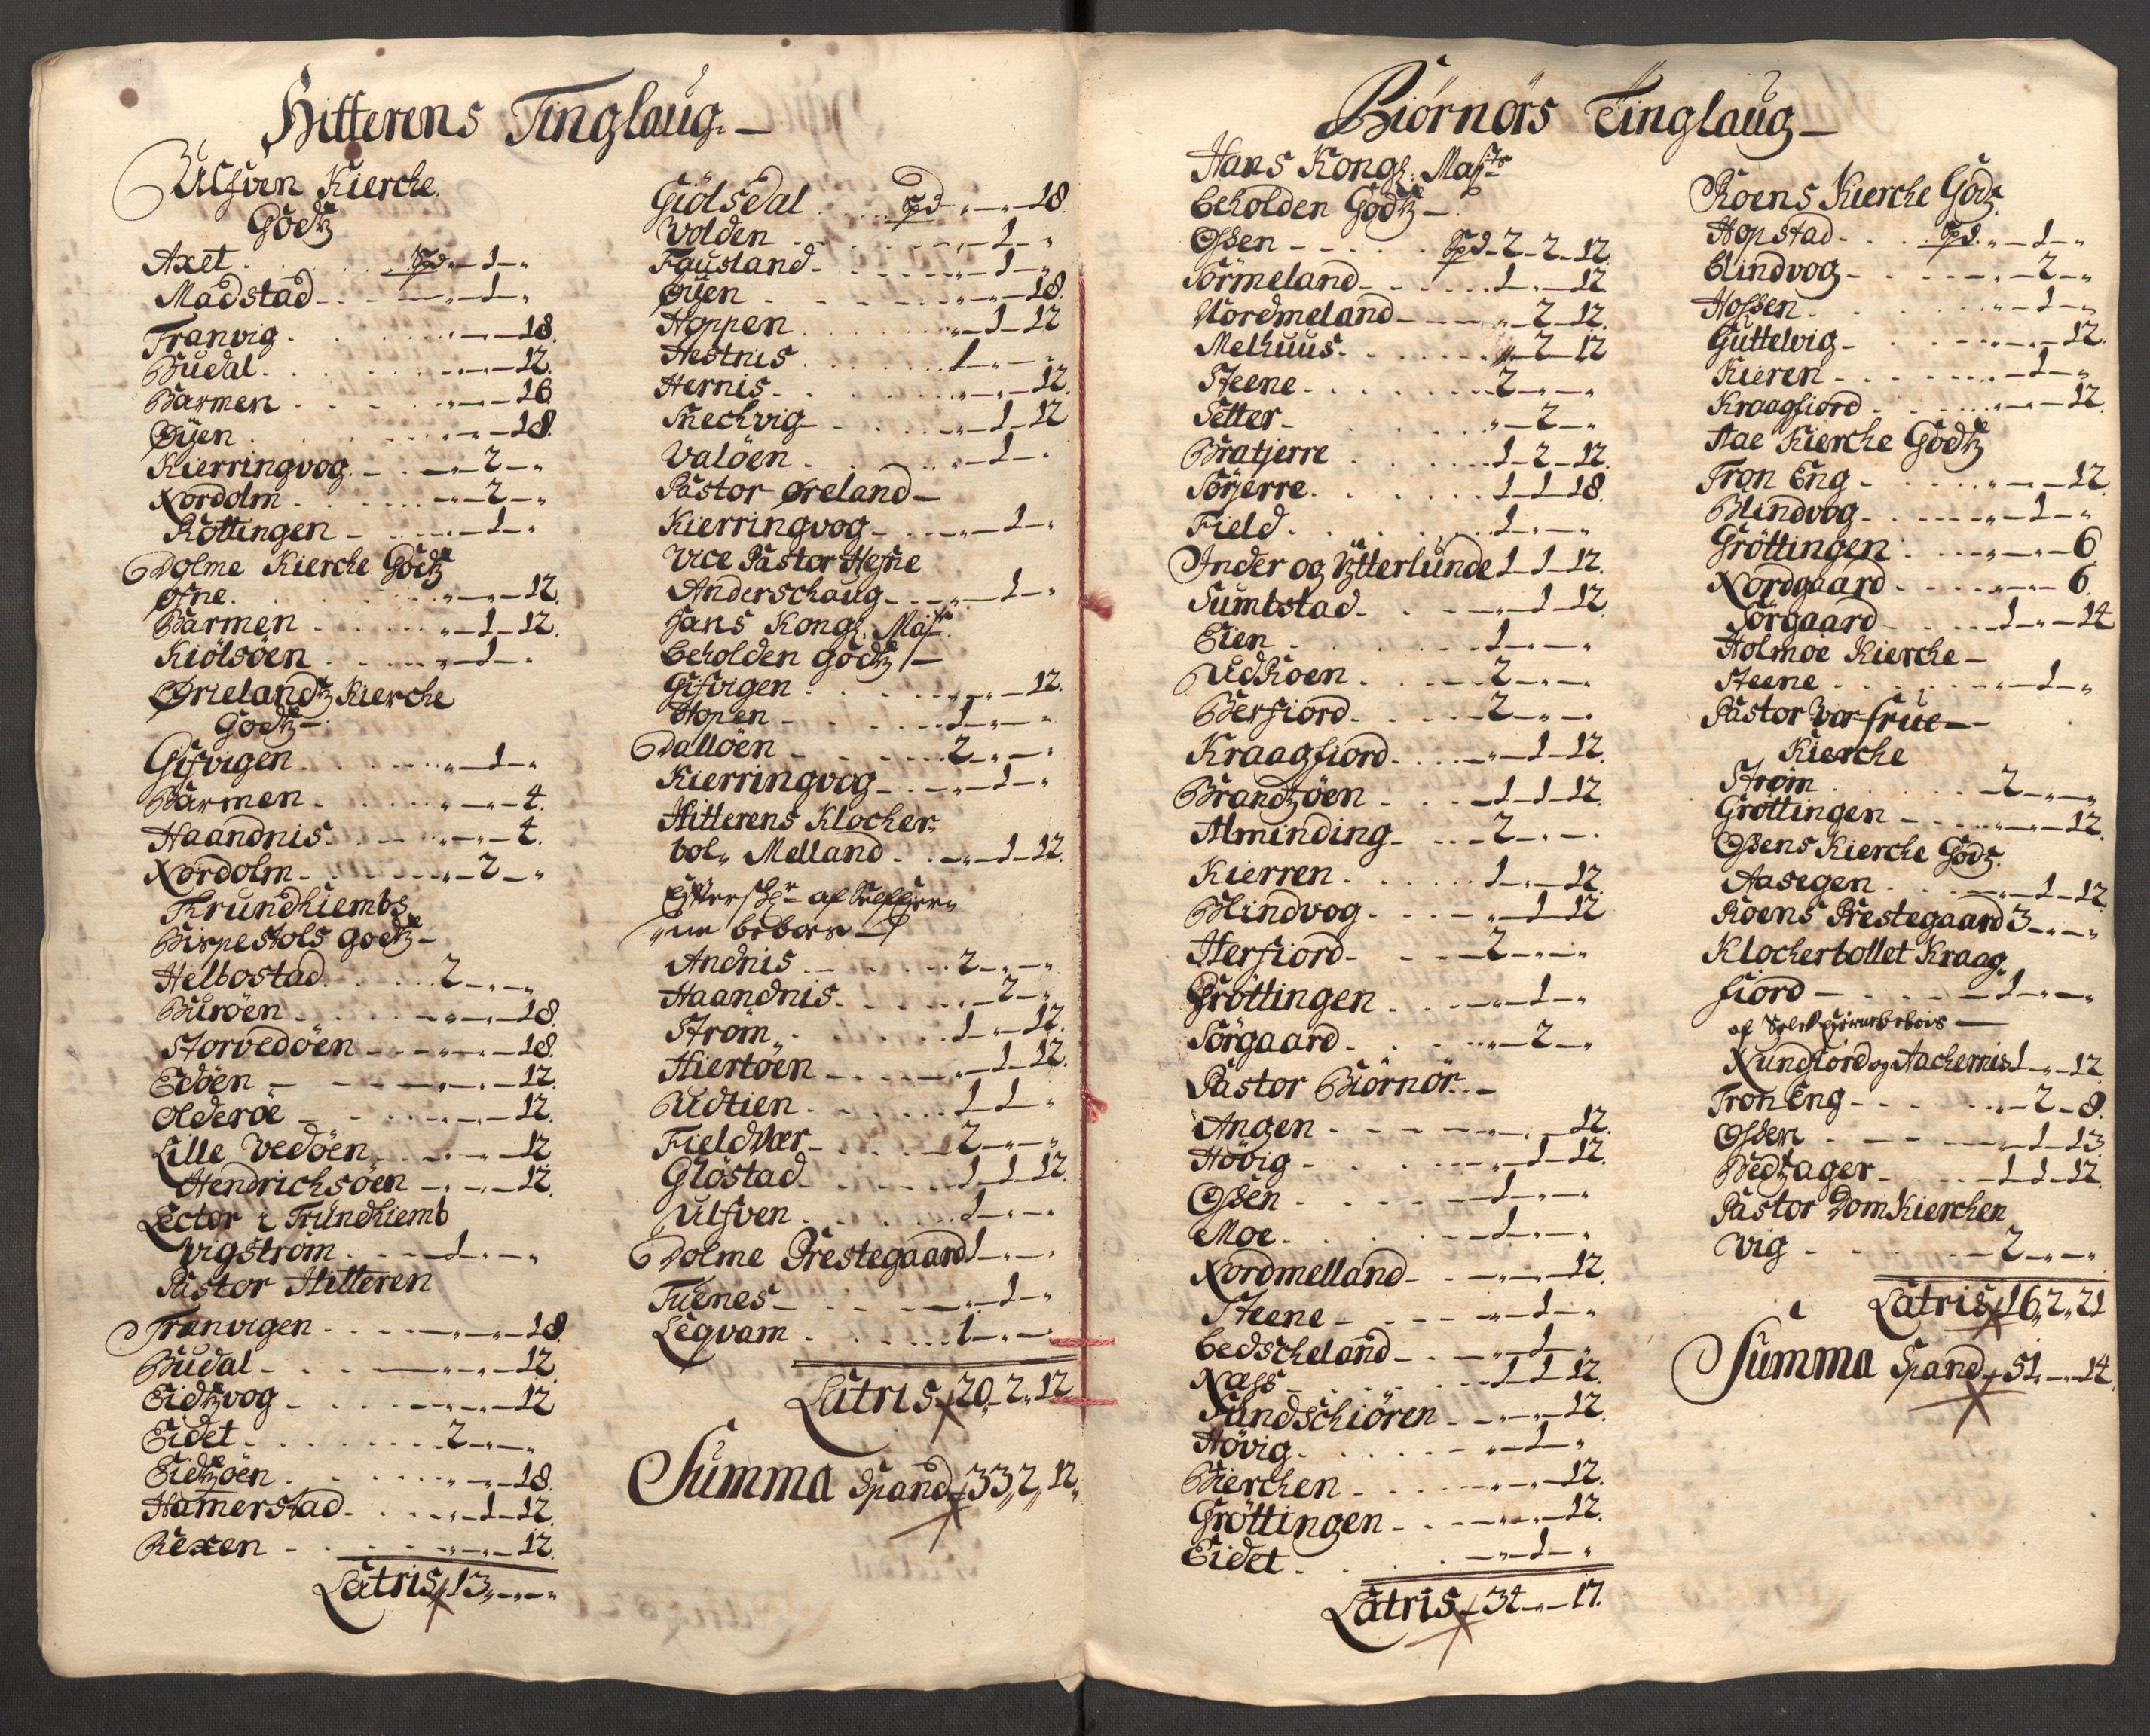 Hitterens Tinglaug. —
Ulfven Kierche
Godtz
Axet . . . Spd „ — 1 — „
Madstad — „ — 1 — „
Tranvig . „ — „ — 18.
Budal . „ — „ — 12.
Barmen . „ — „ — 16
Øÿen . „ — „ — 18.
Kierringvog . — „ — 2 — „
Nordolm . „ — 2 — „
Kottingen — „ — 1 — „
Dolme Kierche Godtz
Ofne . „ — „ — 12.
Barmen . „ — 1 — 12.
Kiölsöen . „ — 1 — „
Ørielandtz Kierche
Godtz — .
Gifvigen . „ — 1 — „
Barmen . „ — „ — 4.
Haandnis . „ — „ — 4.
Nordolm . „ — 2 — „
Thrundhiembs
Bispestols godtz —
Helbostad . 2 — „ — „
Buröen . „ — „ — 18.
Storvedöen — „ — „ — 18.
Edöen — „ — „ — 12.
Olderöe — „ — „ — 12.
Lille Vedöen . „ — „ — 12
Hendrichsöen — „ — „ — 12.
Lector i Trundhiemb
Vigström . — 1 — „ — „
Pastor Hitteren
Tranvigen . „ — „ — 18.
Budal — „ — „ — 12.
Eidtzvog — „ — „ — 12
Eidet . 2 — „ — „
Eidtzöen . „ — „ — 18.
Hamerstad . „ — 1 — 12.
Rexen — „ — „ — 12.
Latris 13 „ — „ — „
Giölsdal . . . Spd „ — „ — 18.
Volden . „ — 1 — „
Fausland . „ — 1 — „
Øyen . „ — „ — 18.
Hoppen . „ — 1 — 12
Hestnis . 1 — „ — „
Hernis . „ — „ — 12.
Snechvig . „ — 1 — 12
Valöen . „ — 1 — „
Pastor Øreland —
Kierringvog . „ — 1 — „
Vice Pastor Hefne
Anderschaug . „ — 1 — „
Hans Kongl. Mayts.
beholden godtz —
Gifvigen . „ — „ — 12.
Hopen — 1 — „ — „
Dallöen — 2 — „ — „
Kierringvog — „ — 1 — „
Hitterens Klocher
bol„ Melland . „ — 1 — 12.
Andnis . 2 — „ — „
Haandnis . „ — 2 — „
Ström . 1 — „ — 12.
Hiertöen . „ — 1 — 12.
Udtien . 1 1 — „
Fieldvær . 2 — „ — „
Glöstad . 1 — 1 — 12.
Ulfven . 1 — „ — „
Dolme Prestegaard 1 — „ — „
Tuenes — „ — 1 — „
Legvam . 1 — „ — „
Latris 20 „ 2 „ 12
Summa Spand 33 „ 2 „ 12 „
Biörnörs Tinglaug —
Hans Kongl. Mayts
beholden Godtz — .
Ossen — . . . Spd — 2 — 2 — 12.
Sörmeland . 1 — „ — 12.
Nordmeland — „ — 2 — 12.
Melhuus . „ — 2 — 12
Steene . 2 — „ — „
Setter — „ — 2 — „
Bratjerre . 1 — 2 — 12.
Sörjerre . 1 — 1 — 18.
Field . 1 — „ — „
Inder og Ytterlunde 1 — 1 — 12.
Sumbstad . „ — 1 — 12.
Eien . 1 — „ — „
Udroen . 2 — „ — „
Berfiord . 2 — „ — „
Kraagfiord . „ — 1 — 12.
Brandtzöen . 1 — 1 — 12.
Alminding . 2 — „ — „
Kierren . 1 — „ — 12.
Blindvog . „ — 1 — 12
Herfiord — 2 — „ — „
Gröttingen . „ — 1 — „
Sörgaard . „ — 2 — „
Pastor Biörnör . —
Angen . „ — „ — 12.
Hövig . „ — 1 — 12.
Ossen . 1 — „ — „
Moe . 1 — „ — „
Nordmelland — „ — „ — 12.
Steene — „ — 1 — „
bedscheland — „ — 1 — „
Næss . 1 — 1 — 12.
Sundschiören . „ — „ — 12.
Hövig . „ — 1 — „
Bierchen . „ — „ — 12.
Gröttingen . „ — „ — 12.
Eidet . „ — 1 — „
Latris 34 — „ — 17.
Roens Kierche Godtz.
Hopstad . . . Spd. „ — 1 — „
Blindvog . „ — 2 — „
Hofsen . „ — 1 — „
Guttelvig . „ — „ — 12.
Kieren . „ — 1 — „
Kraagfiord . „ — „ — 12.
Aae Kierche Godtz
Tron Eng — „ — „ — 12.
Blindvog . „ — 1 — „
Gröttingen . „ — „ — 6
Nordgaard . „ — „ — 6.
Sörgaard . 1 — „ — 14
Holmöe Kierche —
Steene . „ — 1 — „
Pastor Vor frue —
Kierche
Ström . 2 — „ — „
Gröttingen . „ — „ — 12.
Ossens Kierche Godtz.
Aasegen . „ — 1 — 12.
Roens Prestegaard 3 — „ — „
Klocherbollet Kraag„
fiord — 1 — „ — „
Nundfiord og Aachernis 1 „ — 12
Tron Eng . „ — 2 — 8.
Ossen . „ — 1 — 13.
Bedtzager . 1 — 1 — 12.
Pastor Dom Kierchen
Vig . 2 — „ — „
Latris 16 „ 2 „ 21
Summa Spand 51 „ — „ 14.